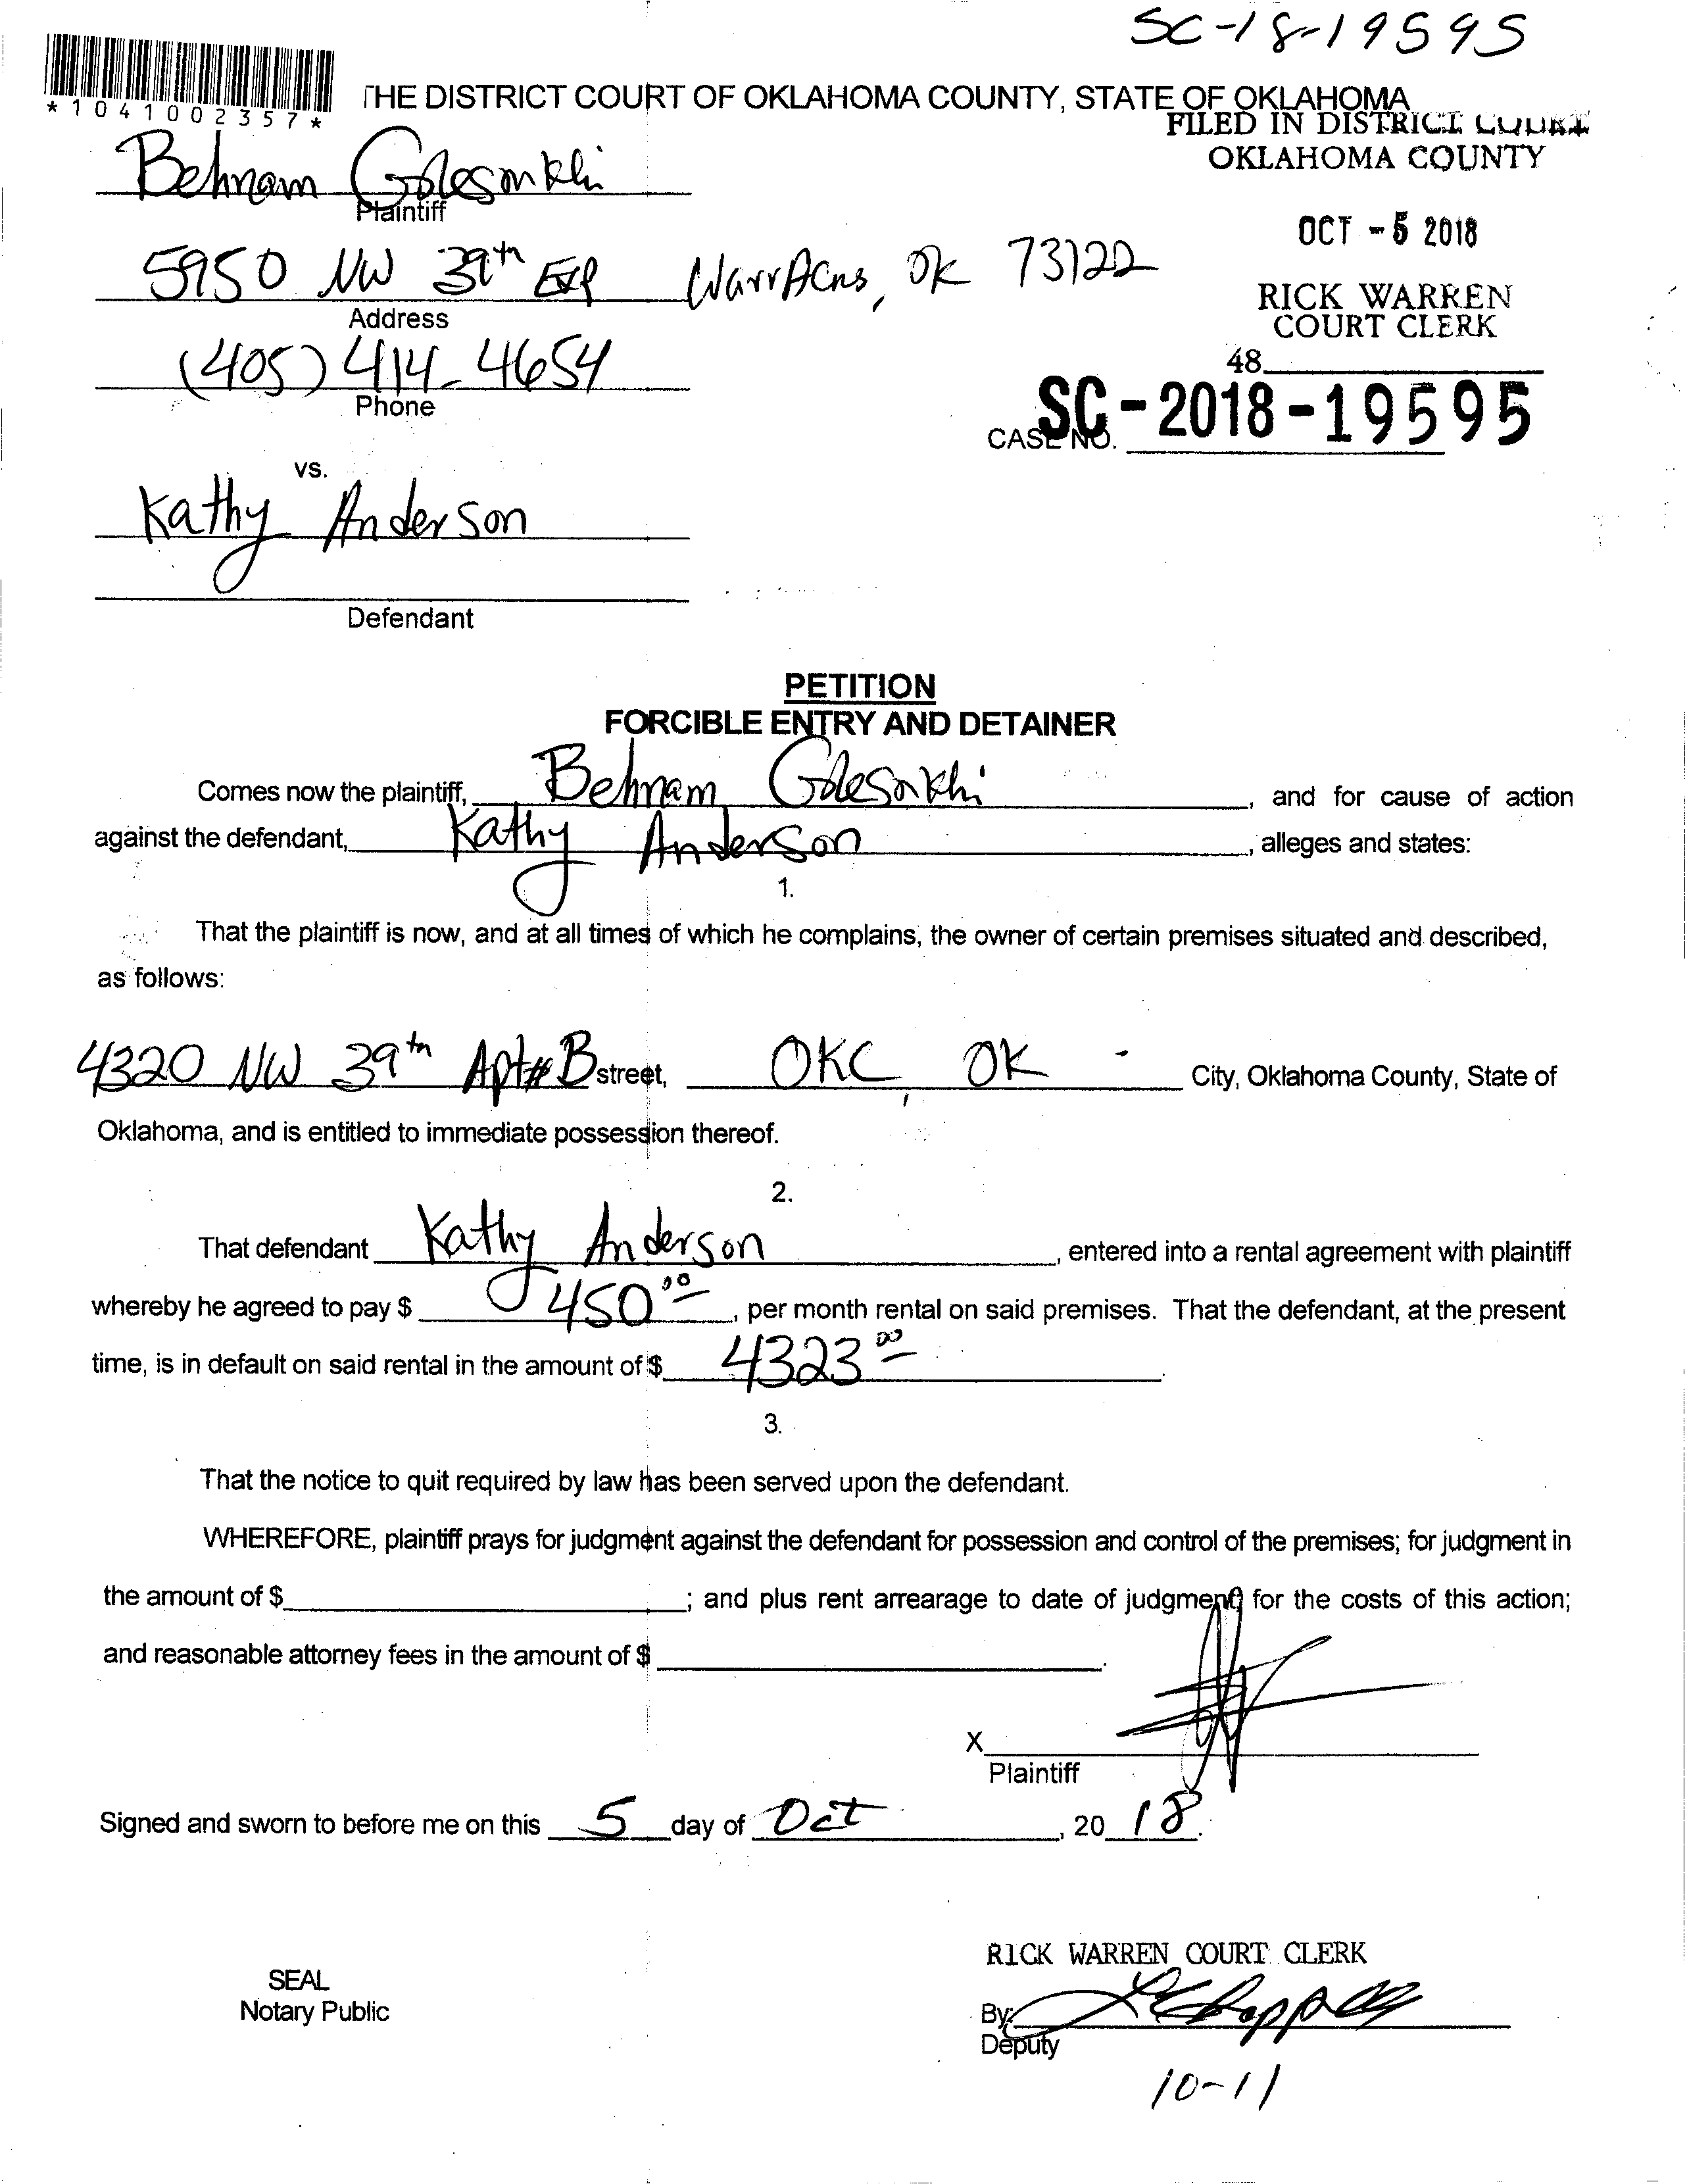 SC-18-19595
*1041002357*
THE DISTRICT COURT OF OKLAHOMA COUNTY, STATE OF OKLAHOMA
FILED IN DISTRICT COURT
OKLAHOMA COUNTY
Behnam
Plaintiff
OCT - 5 2018
5950 NW 39th Exp WarrAcres, OK 73122
Address
RICK WARREN
COURT CLERK
(405) 414-4654
Phone
48
CASE NO. SC-2018-19595
vs.
Kathy Anderson
Defendant
PETITION
FORCIBLE ENTRY AND DETAINER
Comes now the plaintiff, Behnam , and for cause of action
against the defendant, Kathy Anderson , alleges and states:
1.
That the plaintiff is now, and at all times of which he complains, the owner of certain premises situated and described,
as follows:
4320 NW 39th Apt# B street, OKC, OK City, Oklahoma County, State of
Oklahoma, and is entitled to immediate possession thereof.
2.
That defendant Kathy Anderson , entered into a rental agreement with plaintiff
whereby he agreed to pay $ 450.00 , per month rental on said premises. That the defendant, at the present
time, is in default on said rental in the amount of $ 4323 00 .
3.
That the notice to quit required by law has been served upon the defendant.
WHEREFORE, plaintiff prays for judgment against the defendant for possession and control of the premises; for judgment in
the amount of $ ; and plus rent arrearage to date of judgment; for the costs of this action;
and reasonable attorney fees in the amount of $ .
X
Plaintiff
Signed and sworn to before me on this 5 day of Oct , 20 18.
RICK WARREN COURT CLERK
SEAL
Notary Public
By:
Deputy
10-11